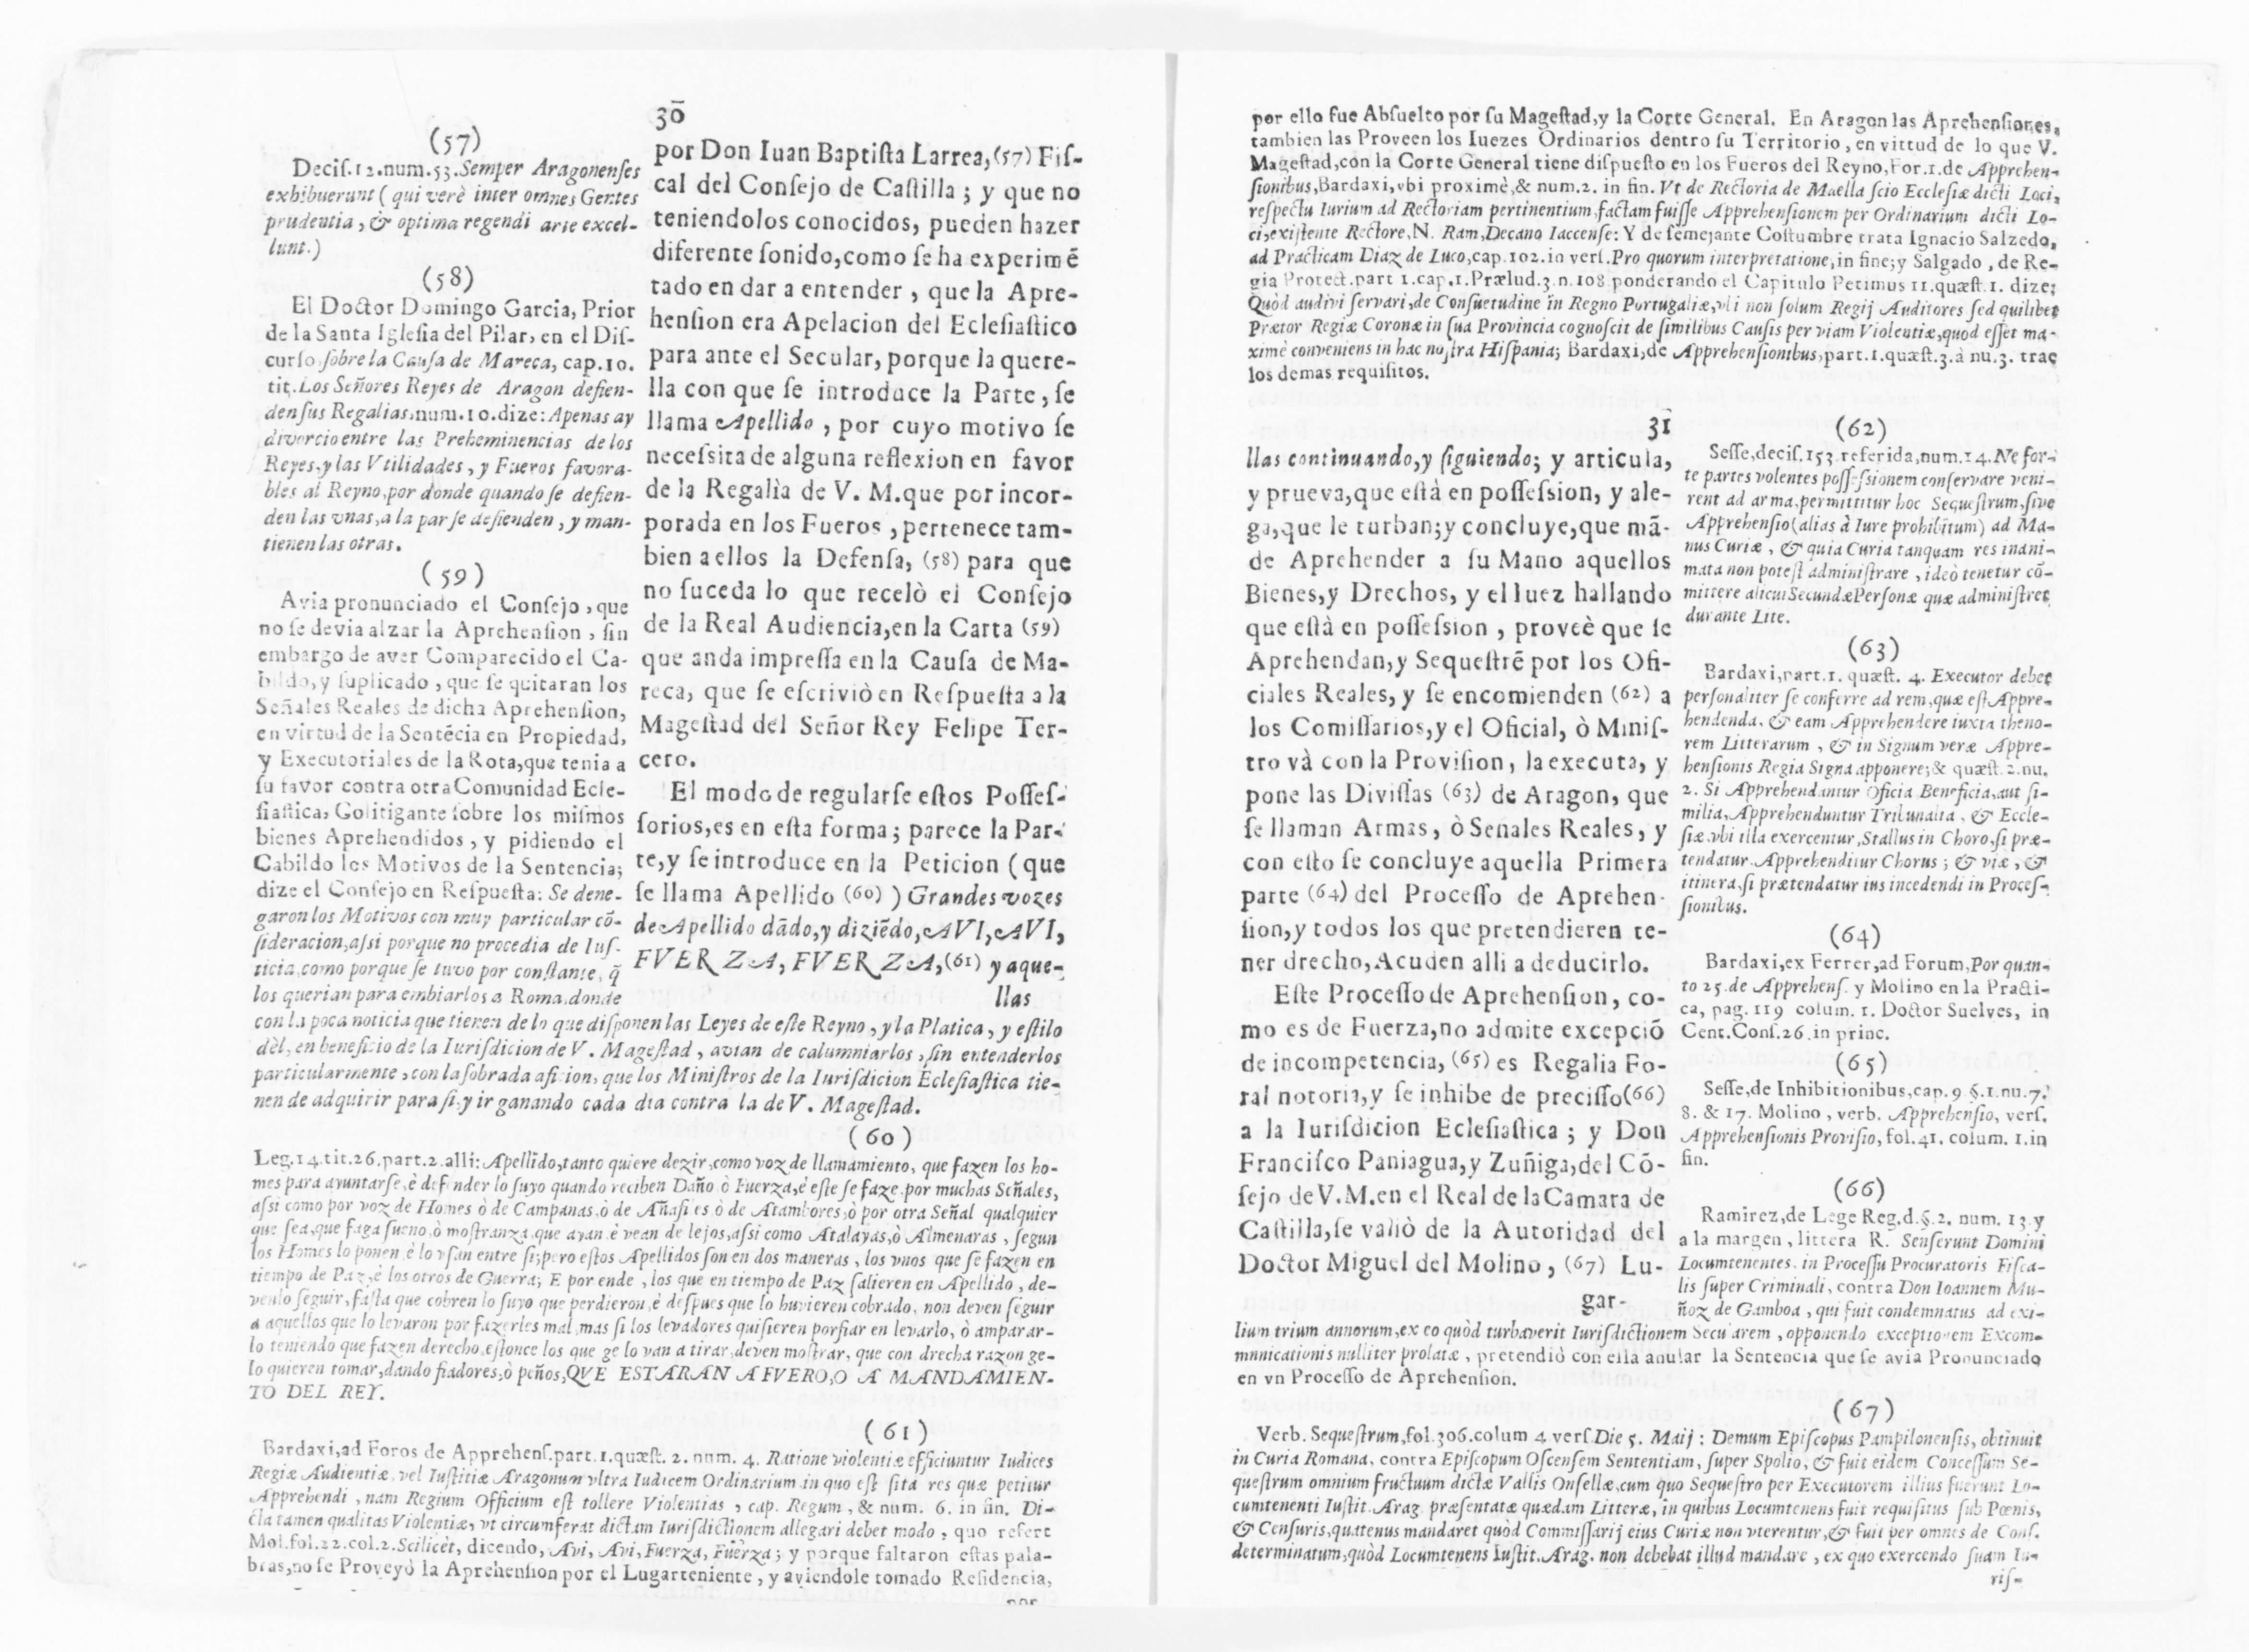 30
(57)
Decis.12.num.53.Semper Aragonenses
exhibuerunt ( qui verè inter omnes Gentes
prudentia , & optima regendi arte excel-
lunt.)
(58)
El Doctor Domingo Garcia, Prior
de la Santa Iglesia del Pilar, en el Dis-
curso sobre la Causa de Mareca, cap.10.
tit. Los Señores Reyes de Aragon defien-
den sus Regalias,num.10.dize: Apenas ay
divorcio entre las Preheminencias de los
Reyes,y las Vtilidades , y Fueros favora-
bles al Reyno,por donde quando se defien-
den las vnas,a la par se defienden , y man-
tienen las otras.
(59)
Avia pronunciado el Consejo , que
no se devia alzar la Aprehension , sin
embargo de aver Comparecido el Ca-
bildo, y suplicado , que se quitaran los
Señales Reales de dicha Aprehension,
en virtud de la Sentēcia en Propiedad,
y Executoriales de la Rota,que tenia a
su favor contra otra Comunidad Ecle-
siastica, Colitigante sobre los mismos
bienes Aprehendidos , y pidiendo el
Cabildo los Motivos de la Sentencia;
dize el Consejo en Respuesta: Se dene-
garon los Motivos con muy particular cō-
sideracion,assi porque no procedia de Ius-
ticia,como porque se tuvo por constante, q̃
los querian para embiarlos a Roma,donde
por Don Iuan Baptista Larrea,(57) Fis-
cal del Consejo de Castilla ; y que no
teniendolos conocidos, pueden hazer
diferente sonido,como se ha experimē
tado en dar a entender , que la Apre-
hension era Apelacion del Eclesiastico
para ante el Secular, porque la quere-
lla con que se introduce la Parte , se
llama Apellido , por cuyo motivo se
necessita de alguna reflexion en favor
de la Regalìa de V. M.que por incor-
porada en los Fueros , pertenece tam-
bien a ellos la Defensa, (58) para que
no suceda lo que recelò el Consejo
de la Real Audiencia,en la Carta (59)
que anda impressa en la Causa de Ma-
reca, que se escriviò en Respuesta a la
Magestad del Señor Rey Felipe Ter-
cero.
El modo de regularse estos Posses-
sorios,es en esta forma; parece la Par-
te,y se introduce en la Peticion ( que
se llama Apellido (60) ) Grandes vozes
de Apellido dādo,y diziēdo, AVI, AVI,
FVERZA, FVERZA,(61) y aque-
llas
con la poca noticia que tienen de lo que disponen las Leyes de este Reyno , y la Platica , y estilo
dèl, en beneficio de la Iurisdicion de V . Magestad , avian de calumniarlos , sin entenderlos
particularmente , con la sobrada aficion, que los Ministros de la Iurisdicion Eclesiastica tie-
nen de adquirir para si,y ir ganando cada dia contra la de V . Magestad.
(60)
Leg.14.tit.26.part.2.alli: Apellido,tanto quiere dezir,como voz de llamamiento, que fazen los ho-
mes para ayuntarse,è defender lo suyo quando reciben Daño ò Fuerza,è este se faze,por muchas Señales,
assi como por voz de Homes ò de Campanas,ò de Añafiles ò de Atambores,ò por otra Señal qualquier
que sea,que faga sueno,ò mostranza,que ayan è vean de lejos,assi como Atalayas,ò Almenaras , segun
los Homes lo ponen è lo vsan entre si;pero estos Apellidos son en dos maneras , los vnos que se fazen en
tiempo de Paz,è los otros de Guerra; E por ende , los que en tiempo de Paz salieren en Apellido , de-
venlo seguir, fasta que cobren lo suyo que perdieron,è despues que lo huvieren cobrado, non deven seguir
a aquellos que lo levaron por fazerles mal,mas si los levadores quisieren porfiar en levarlo, ò amparar-
lo teniendo que fazen derecho,estonce los que ge lo van a tirar,deven mostrar, que con drecha razon ge-
lo quieren tomar,dando fiadores,ò peños,QVE ESTARAN A FVERO,O A MANDAMIEN-
TO DEL REY.
(61)
Bardaxi,ad Foros de Apprehens.part.1.quæst. 2. num. 4. Ratione violentiæ efficiuntur Iudices
Regiæ Audientiæ, vel Iustitiæ Aragonum vltra Iudicem Ordinarium in quo est sita res quæ petitur
Apprehendi , nam Regium Officium est tollere Violentias , cap. Regum , & num. 6. in fin. Di-
cta tamen qualitas Violentiæ, vt circumferat dictam Iurisdictionem allegari debet modo , quo refert
Mol.fol.22.col.2.Scilicèt, dicendo, Avi, Avi, Fuerza, Fuerza; y porque faltaron estas pala-
bras,no se Proveyò la Aprehension por el Lugarteniente , y aviendole tomado Residencia,
por
por ello fue Absuelto por su Magestad,y la Corte General. En Aragon las Aprehensiones,
tambien las Proveen los Iuezes Ordinarios dentro su Territorio , en virtud de lo que V.
Magestad,con la Corte General tiene dispuesto en los Fueros del Reyno,For.1.de Apprehen-
sionibus,Bardaxi,vbi proximè,& num.2. in fin. Vt de Rectoria de Maella scio Ecclesiæ dicti Loci,
respectu Iurium ad Rectoriam pertinentium,factam fuisse Apprehensionem per Ordinarium dicti Lo-
ci,existente Rectore,N. Ram,Decano Iaccense: Y de semejante Costumbre trata Ignacio Salzedo,
ad Practicam Diaz de Luco,cap.102.in vers.Pro quorum interpretatione,in fine;y Salgado , de Re-
gia Protect.part 1.cap.1.Prælud.3.n.108.ponderando el Capitulo Petimus 11.quæst.1. dize;
Quòd audivi servari,de Consuetudine in Regno Portugaliæ,vbi non solum Regij Auditores sed quilibet
Prætor Regiæ Coronæ in sua Provincia cognoscit de similibus Causis per viam Violentiæ,quod esset ma-
ximè conveniens in hac nostra Hispania; Bardaxi,de Apprehensionibus,part.1.quæst.3.à nu.3. trae
los demas requisitos.
31
llas continuando,y siguiendo; y articula,
y prueva,que està en possession, y ale-
ga,que le turban;y concluye,que mā-
de Aprehender a su Mano aquellos
Bienes,y Drechos, y el Iuez hallando
que està en possession , proveè que se
Aprehendan,y Sequestrē por los Ofi-
ciales Reales, y se encomienden (62) a
los Comissarios,y el Oficial, ò Minis-
tro và con la Provision , la executa, y
pone las Divissas (63) de Aragon, que
se llaman Armas, ò Señales Reales, y
con esto se concluye aquella Primera
parte (64) del Processo de Aprehen-
sion,y todos los que pretendieren te-
ner drecho,Acuden alli a deducirlo.
Este Processo de Aprehension, co-
mo es de Fuerza,no admite excepciō
de incompetencia, (65) es Regalia Fo-
ral notoria,y se inhibe de precisso(66)
a la Iurisdicion Eclesiastica ; y Don
Francisco Paniagua,y Zuñiga,del Cō-
sejo de V.M.en el Real de la Camara de
Castilla,se valiò de la Autoridad del
Doctor Miguel del Molino , (67) Lu-
gar-
(62)
Sesse,decis.153.referida,num.14.Ne for-
te partes volentes possessionem conservare veni-
rent ad arma,permittitur hoc Sequestrum,sive
Apprehensio(alias à Iure prohibitum) ad Ma-
nus Curiæ , & quia Curia tanquam res inani-
mata non potest administrare , ideò tenetur cō-
mittere alicui Secundæ Personæ quæ administret
durante Lite.
(63)
Bardaxi,part.1. quæst. 4. Executor debet
personaliter se conferre ad rem,quæ est Appre-
hendenda, & eam Apprehendere iuxta theno-
rem Litterarum , & in Signum veræ Appre-
hensionis Regia Signa apponere;& quæst.2.nu.
2. Si Apprehendantur Oficia Beneficia,aut si-
milia,Apprehenduntur Tribunalia , & Eccle-
siæ,vbi illa exercentur,Stallus in Choro,si præ-
tendatur.Apprehenditur Chorus ; & viæ , &
itinera,si prætendatur ius incedendi in Proces-
sionibus.
(64)
Bardaxi,ex Ferrer,ad Forum,Por quan-
to 25.de Apprehens. y Molino en la Practi-
ca, pag. 119 colum. 1. Doctor Suelves, in
Cent.Cons.26.in princ.
(65)
Sesse,de Inhibitionibus,cap.9 §.1.nu.7.
8. & 17. Molino , verb. Apprehensio, vers.
Apprehensionis Provisio, fol.41. colum. 1.in
fin.
(66)
Ramirez,de Lege Reg.d.§.2. num. 13.y
a la margen , littera R. Senserunt Domini
Locumtenentes, in Processu Procuratoris Fisca-
lis super Criminali, contra Don Ioannem Mu-
ñoz de Gamboa , qui fuit condemnatus ad exi-
lium trium annorum,ex eo quòd turbaverit Iurisdictionem Secularem , opponendo exceptionem Excom-
municationis nulliter prolatæ , pretendiò con ella anular la Sentencia que se avia Pronunciado
en vn Processo de Aprehension.
(67)
Verb. Sequestrum,fol.306.colum 4 vers Die 5. Maij : Demum Episcopus Pampilonensis, obtinuit
in Curia Romana, contra Episcopum Oscensem Sententiam, super Spolio, & fuit eidem Concessum Se-
questrum omnium fructuum dictæ Vallis Onsellæ,cum quo Sequestro per Executorem illius fuerunt Lo-
cumtenenti Iustit. Arag. præsentatæ quædam Litteræ, in quibus Locumtenens fuit requisitus sub Pœnis,
& Censuris,quatenus mandaret quòd Commissarij eius Curiæ non vterentur,& fuit per omnes de Cons.
determinatum,quòd Locumtenens Iustit. Arag. non debebat illud mandare , ex quo exercendo suam Iu-
ris-